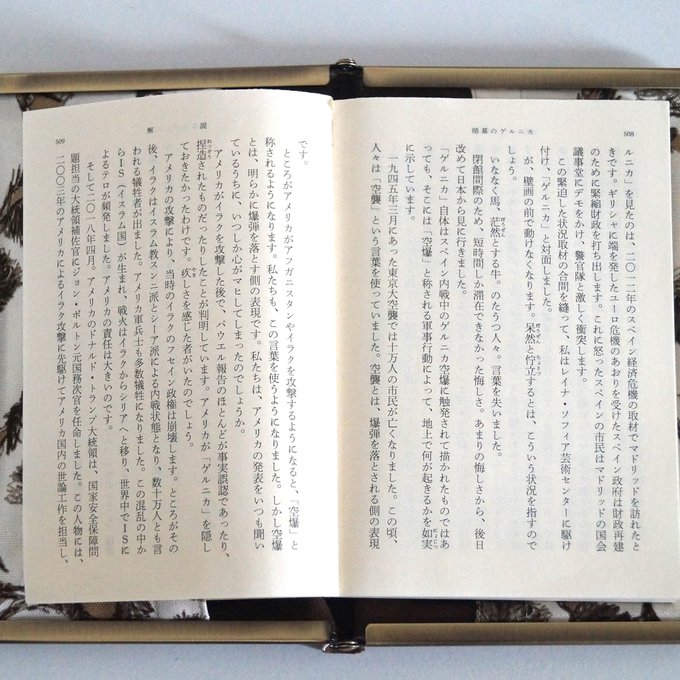 508
暗幕のゲルニカ
ルニカ」を見たのは、二〇一二年のスペイン経済危機の取材でマドリッドを訪れたと
きです。ギリシャに端を発したユーロ危機のあおりを受けたスペイン政府は財政再建
のために緊縮財政を打ち出します。これに怒ったスペインの市民はマドリッドの国会
議事堂にデモをかけ、警官隊と激しく衝突します。
この緊迫した状況取材の合間を縫って、私はレイナ・ソフィア芸術センターに駆け
付け、「ゲルニカ」と対面しました。
が、壁画の前で動けなくなります。呆然と佇立するとは、こういう状況を指すので
しょう。
いななく馬、茫然とする牛。のたうつ人々。言葉を失いました。
閉館間際のため、短時間しか滞在できなかった悔しさ。あまりの悔しさから、後日
改めて日本から見に行きました。
「ゲルニカ」自体はスペイン内戦中のゲルニカ空爆に触発されて描かれたものではあ
っても、そこには「空爆」と称される軍事行動によって、地上で何が起きるかを如実
に示しています。
一九四五年三月にあった東京大空襲では十万人の市民が亡くなりました。この頃、
人々は「空襲」という言葉を使っていました。空襲とは、爆弾を落とされる側の表現
509
解説
です。
ところがアメリカがアフガニスタンやイラクを攻撃するようになると、「空爆」と
称されるようになります。私たちも、この言葉を使うようになりました。しかし空爆
とは、明らかに爆弾を落とす側の表現です。私たちは、アメリカの発表をいつも聞い
ているうちに、いつしか心がマヒしてしまったのでしょうか。
アメリカがイラクを攻撃した後で、パウエル報告のほとんどが事実誤認であったり、
捏造されたものだったりしたことが判明しています。アメリカが「ゲルニカ」を隠し
ておきたかったわけです。疚しさを感じた者がいたのでしょう。
アメリカの攻撃により、当時のイラクのフセイン政権は崩壊します。ところがその
後、イラクはイスラム教スンニ派とシーア派による内戦状態となり、数十万人とも言
われる犠牲者が出ました。アメリカ軍兵士も多数犠牲になりました。この混乱の中か
らIS（イスラム国）が生まれ、戦火はイラクからシリアへと移り、世界中でISに
よるテロが頻発しました。アメリカの責任は大きいのです。
そして二〇一八年四月。アメリカのドナルド・トランプ大統領は、国家安全保障問
題担当の大統領補佐官にジョン・ボルトン元国務次官を任命しました。この人物には、
二〇〇三年のアメリカによるイラク攻撃に先駆けてアメリカ国内の世論工作を担当し、